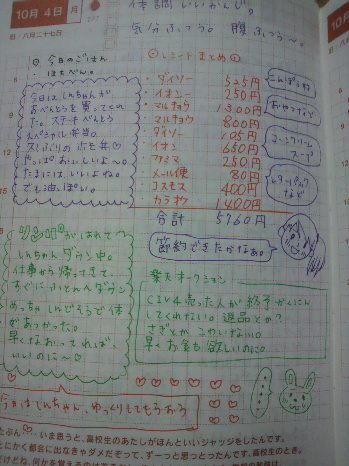 10月 4日 月
旧・八月二十七日
277
体調いいかんじ。
気分ふつう。 腹ふつう〜。
◎今日のごはん
ほもべん。
今日はしんちゃんが
おべんとうを買ってくれ
た。ステーキべんとう
スペシャル弁当。
久しぶりのホモ弁♡
やっぱおいしいよ〜。
たまにはいいよね。
でも油っぽい。
◎レシートまとめ◎
・ダイソー 525円
・イオン 250円
・マルチョウ 1300円
マルチョウ 800円
・ダイソー 105円
・イオン 650円
・ファミマ 250円
・メール便 80円
・コスモス 400円
・カラオケ 1400円
合計 5760円
おやつなど
コーンクリーム
スープ
など
節約できたかなぁ。
リンパがはれて
しんちゃん
ダウン中。
仕事から帰ってきて、
すぐにふとんへダウン
めっちゃしんどそうで体
があつかった。
早くなおってくれば
いいのに〜♡
楽天オークション
してくれない。返品とか?
さぎとか こわいなぁ。
早くお金も欲しいのに。
今日はしんちゃん、ゆっくりしてもらおう
いま思うと、高校生のあたしがほんといいジャッジをしたんです。
とにかく都会に出なきゃダメだぞって、ずーっと思っとったんです。高校生のとき。